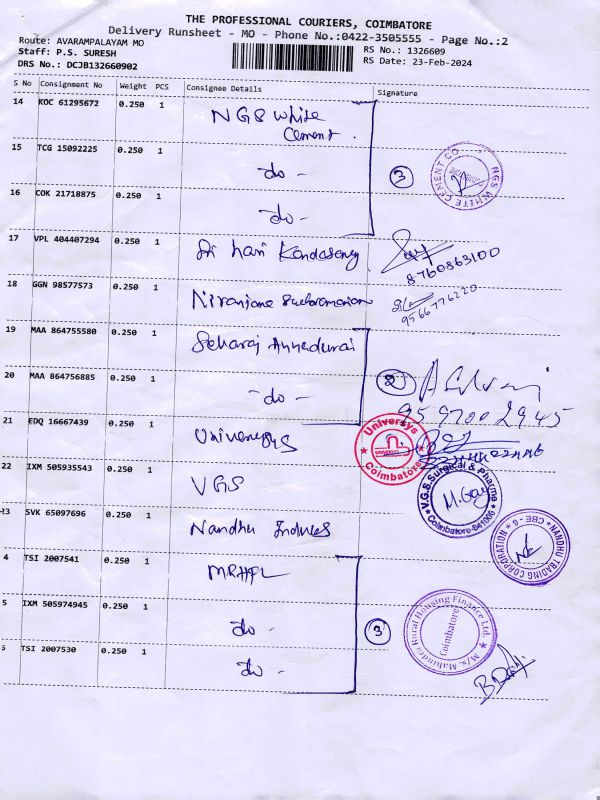 THE PROFESSIONAL COURIERS, COIMBATORE
Delivery Runsheet - MO - Phone No.:0422-3505555 - Page No.:2
Route: AVARAMPALAYAM MO
RS No.: 1326609
Staff: P.S. SURESH
RS Date: 23-Feb-2024
DRS No.: DCJB132660902
S No Consignment No Weight PCS Consignee Details Signature
14 KOC 61295672 0.250 1 NGS White
Cement.
15 TCG 15092225 0.250 1 -do-
3
NGS WHITE CEMENT CO
16 COK 21718875 0.250 1 -do-
17 VPL 404407294 0.250 1 Sri Hari Kandasamy
8760863100
18 GGN 98577573 0.250 1 Niranjane Subramanian
9566776220
19 MAA 864755580 0.250 1 Selvaraj Annadurai
20 MAA 864756885 0.250 1 -do-
2
9597002945
21 EDQ 16667439 0.250 1 Universys
Universys
Coimbatore
22 IXM 505935543 0.250 1 VGS
V.G.S. Surgical & Pharma
Coimbatore-641006
23 SVK 65097696 0.250 1 Nandhu
NANDHU TRADING CORPORATION
CBE - 6
4 TSI 2007541 0.250 1 MRHFL
5 IXM 505974945 0.250 1 -do-
3
M/s. Mahindra Rural Housing Finance Ltd.
Coimbatore
TSI 2007530 0.250 1 -do-